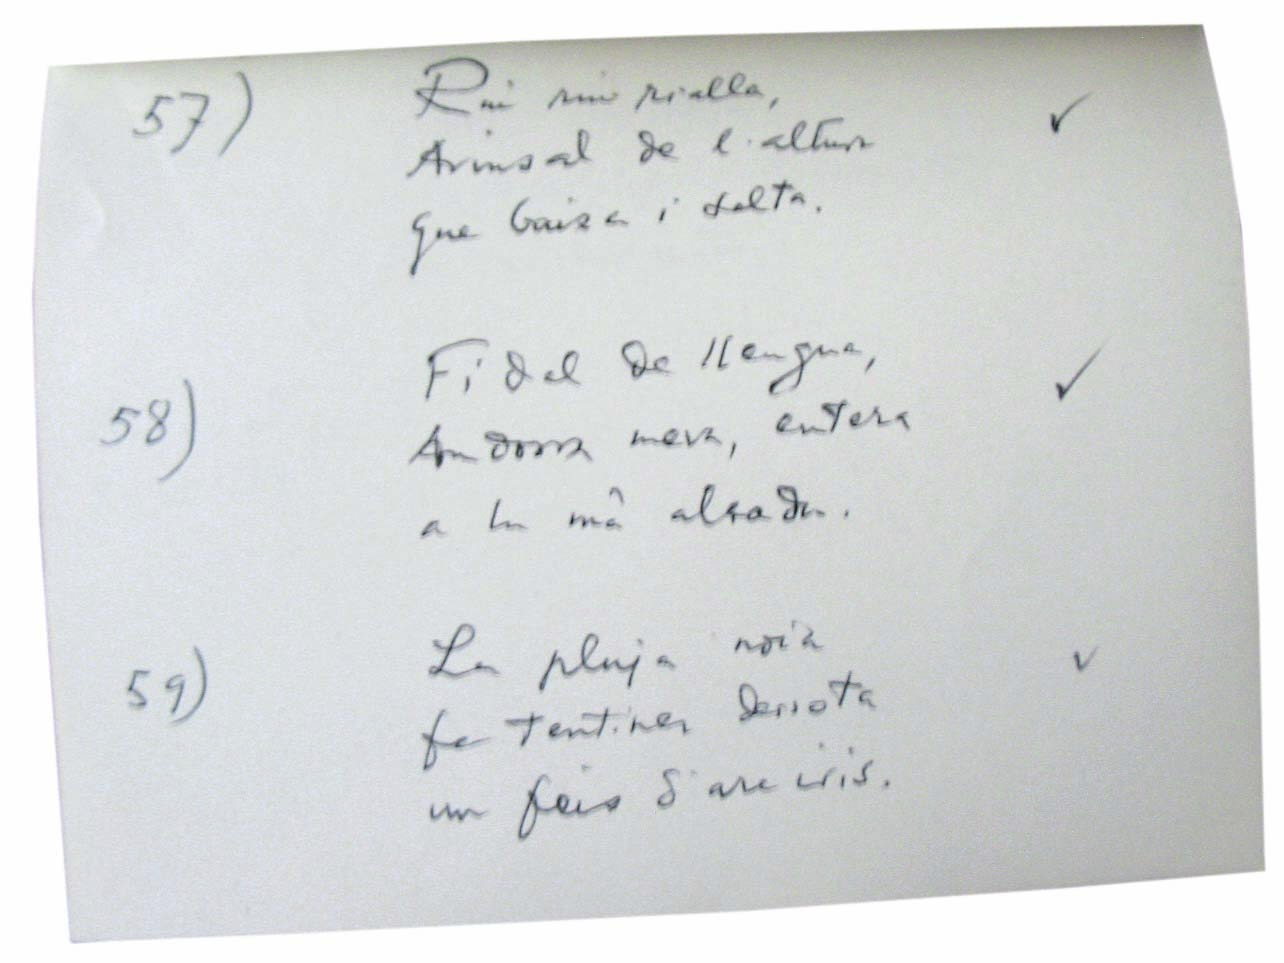 57)
Riu riu rialla,
Arinsal de l'altura
que baixa i salta. ✓
58)
Fidel de llengua,
Andorra meva, entera
a la mà alçada. ✓
59)
La pluja noia
fa tentines derrota
un feix d'arc iris. ✓